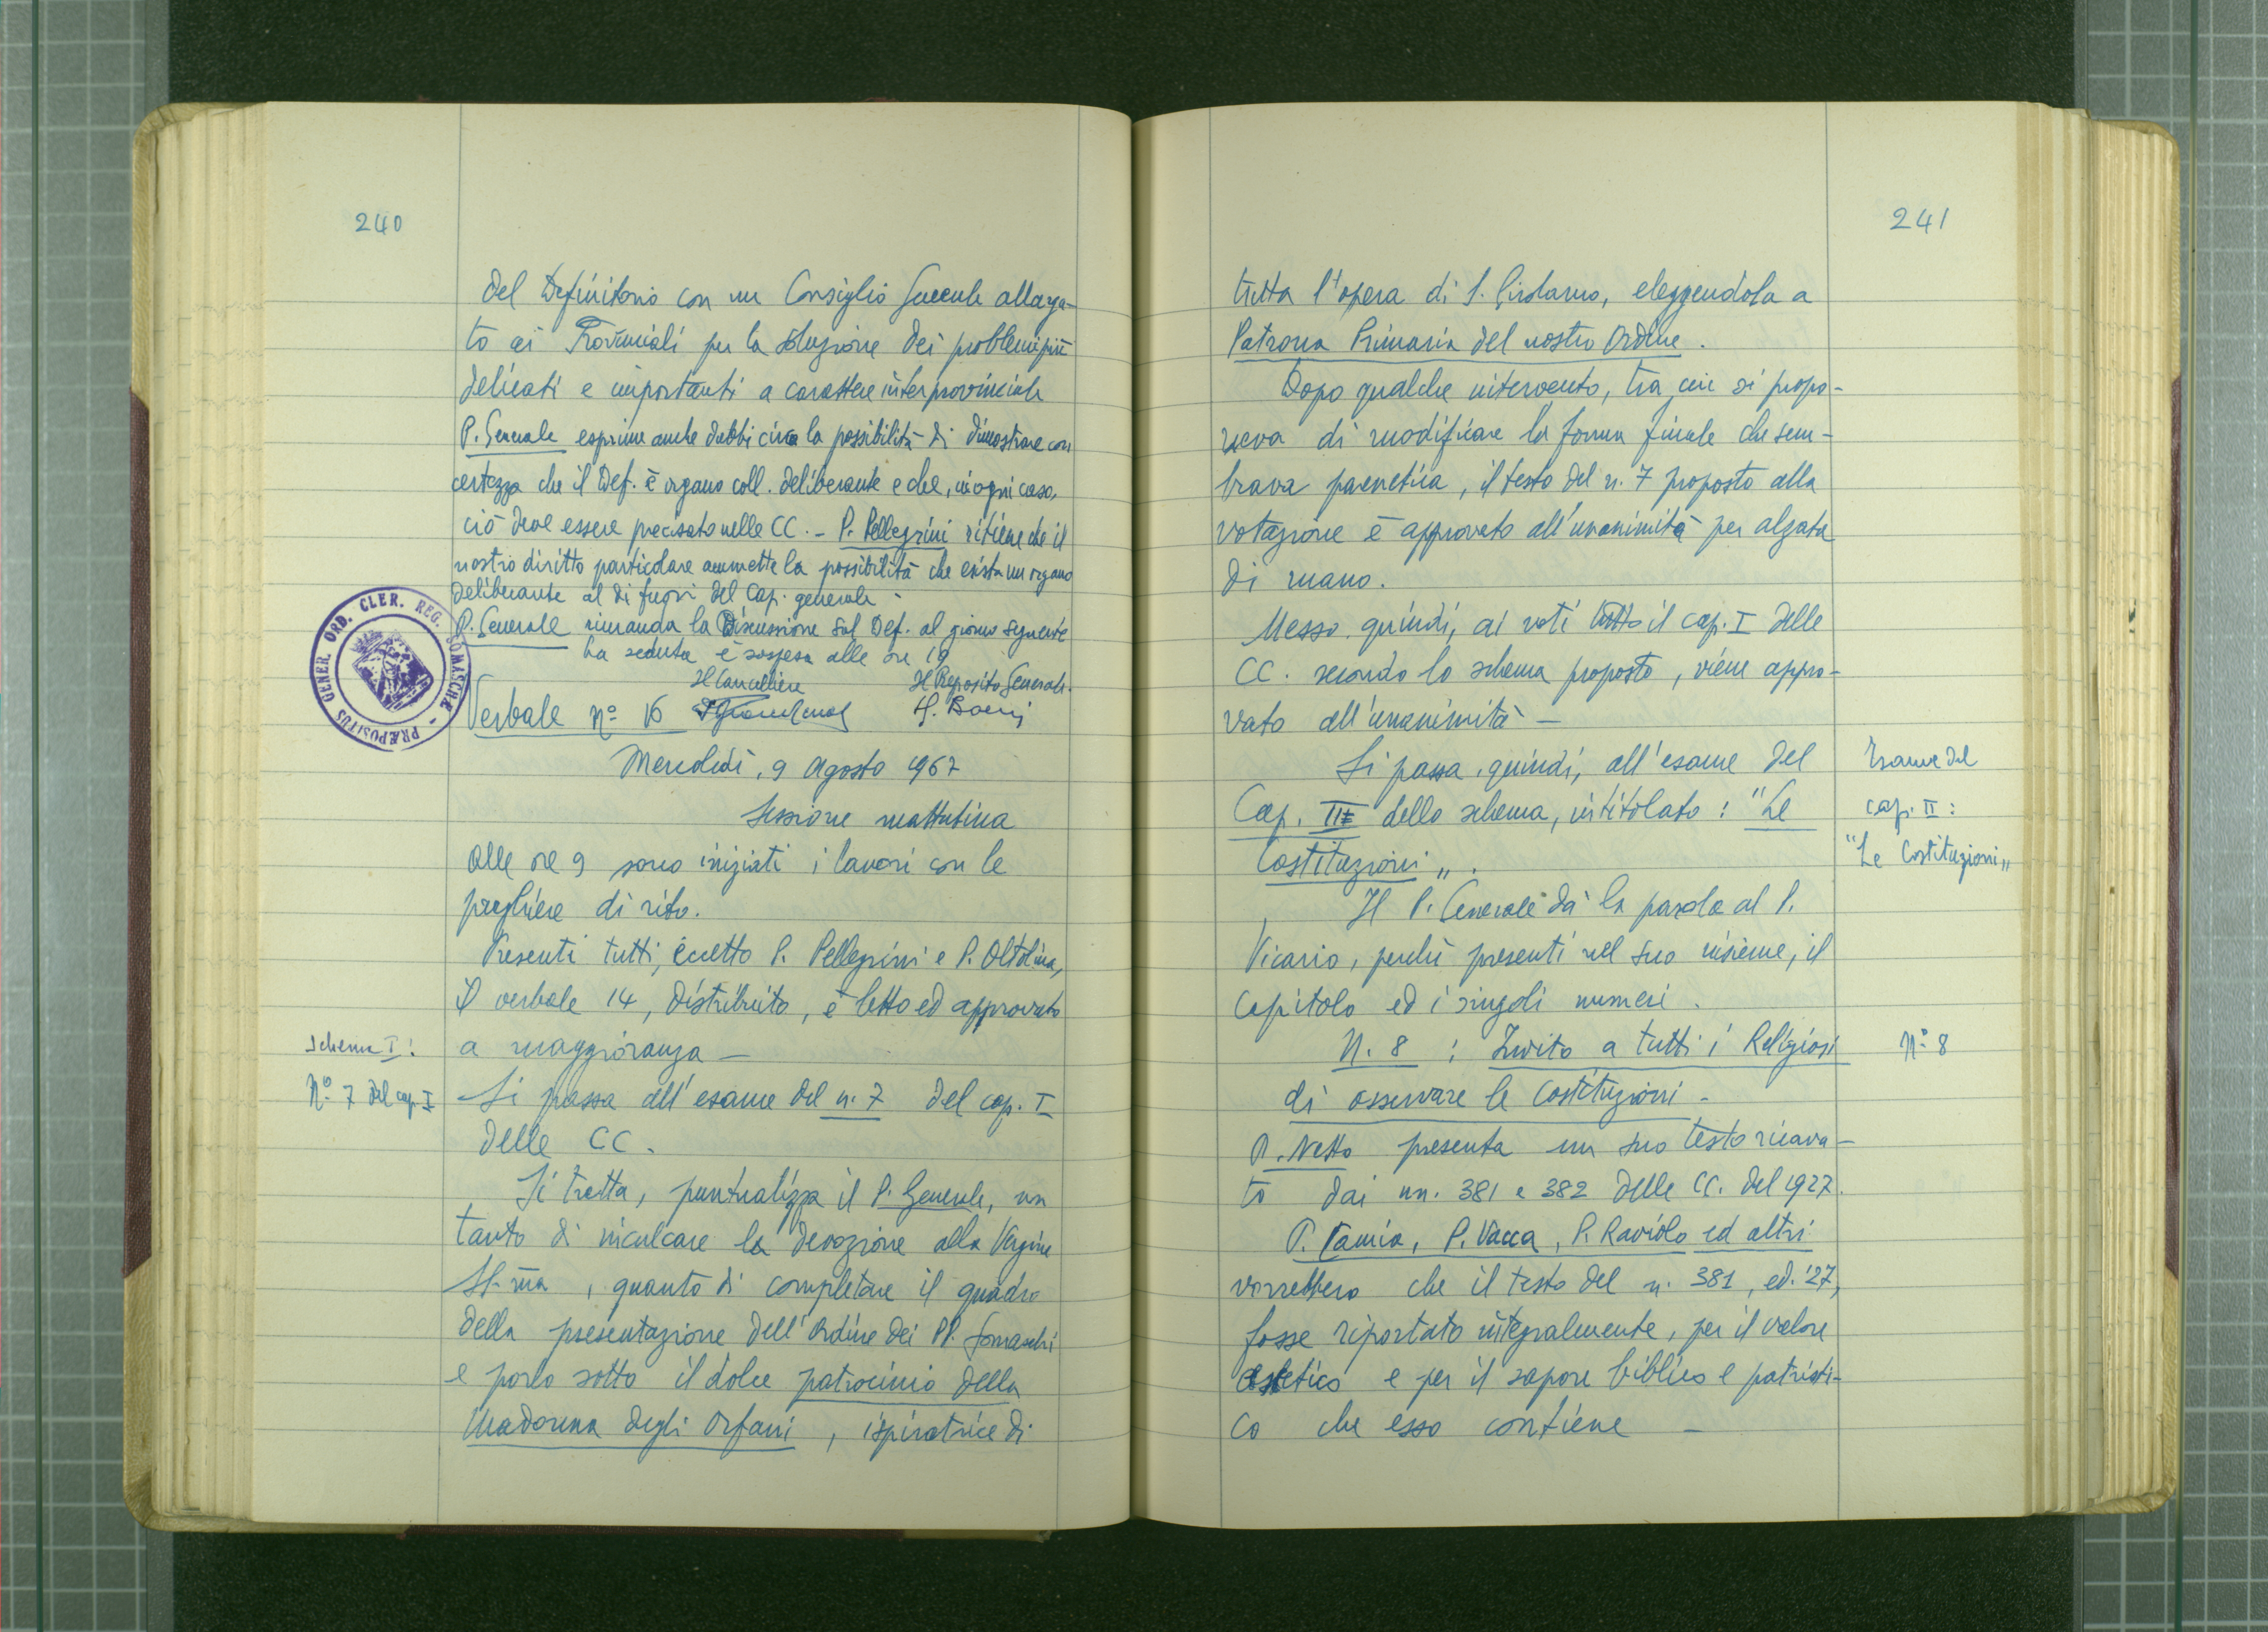 240
del Definitorio con un Consiglio Generale allarga-
to ai Provinciali per la soluzione dei problemi più
delicati e importanti a carattere interprovinciale
P. Generale esprime anche dubbi circa la possibilità di dimostrare con
certezza che il Def. è organo coll. deliberante e che, in ogni caso,
ciò deve essere precisato nelle CC. - P. Pellegrini ritiene che il
nostro diritto particolare ammette la possibilità che esista un organo
deliberante al di fuori del Cap. generale -
P. Generale rimanda la Discussione sul Def. al giorno seguente
La seduta è sospesa alle ore 19
Il Cancelliere Il Preposito Generale.
PRÆPOSITUS GENER. ORD. CLER. REG. SOMASCHÆ
Verbale nº 16
Mercoledì, 9 Agosto 1967
Sessione mattutina
Alle ore 9 sono iniziati i lavori con le
preghiere di rito.
Presenti tutti, eccetto P. Pellegrini e P. Oltolina,
Il verbale 14, distribuito, è letto ed approvato
Schema I:
a maggioranza —
Nº 7 del cap. I
Si passa all'esame del n. 7 del cap. I
delle CC.
Si tratta, puntualizza il P. Generale, non
tanto di inculcare la devozione alla Vergine
SS.ma, quanto di completare il quadro
della presentazione dell'Ordine dei PP. Somaschi
e porlo sotto il dolce patrocinio della
Madonna degli Orfani, ispiratrice di
241
tutta l'opera di S. Girolamo, eleggendola a
Patrona Primaria del nostro Ordine.
Dopo qualche intervento, tra cui si propo-
neva di modificare la forma finale che sem-
brava parenetica, il testo del n. 7 proposto alla
votazione è approvato all'unanimità per alzata
di mano.
Messo, quindi, ai voti tutto il cap. I delle
CC. secondo lo schema proposto, viene appro-
vato all'unanimità —
Si passa, quindi, all'esame del
Esame del
Cap. II dello schema, intitolato: "Le
cap. II:
Costituzioni".
"Le Costituzioni"
Il P. Generale dà la parola al P.
Vicario, perché presenti nel suo insieme, il
capitolo ed i singoli numeri.
N. 8 : Invito a tutti i Religiosi
Nº 8
di osservare le Costituzioni -
P. Netto presenta un suo testo ricava-
to dai nn. 381 e 382 delle CC. del 1927.
P. Vacca, P. Raviolo ed altri
vorrebbero che il testo del n. 381, ed. '27,
fosse riportato integralmente, per il valore
ascetico e per il sapore biblico e patristi-
co che esso contiene —